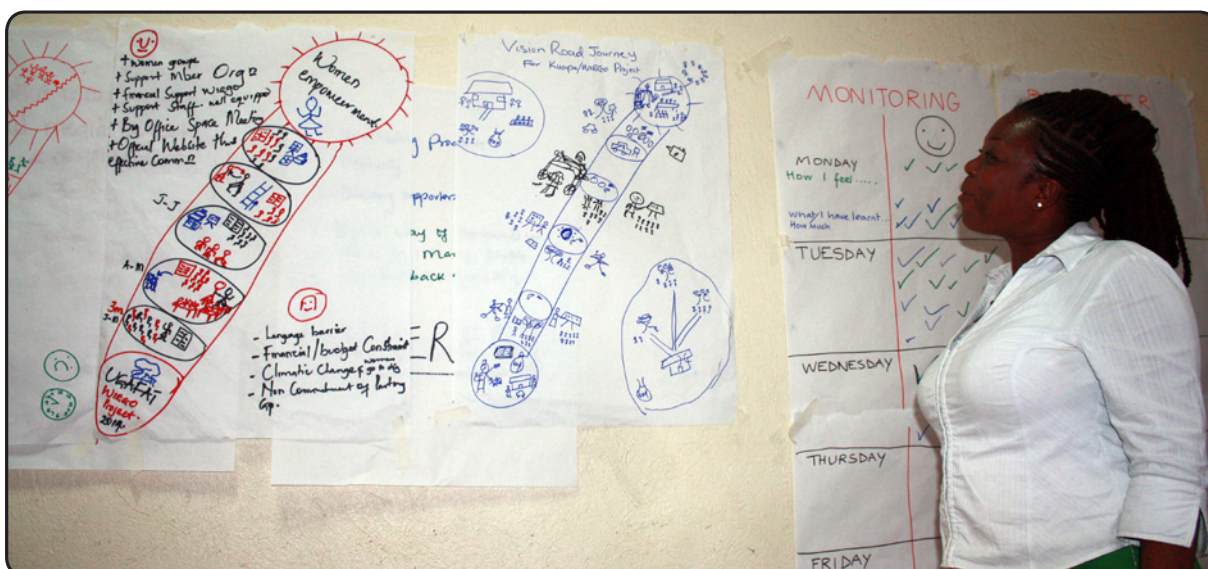 + Women groups
+ Support Mber Org
+ Financial Support WIEGO
+ Support Staff. well equipped
+ Big Office Space Meeting
+ Offical Website that
effective Comm
Women
empowerment
J-J
A-M
3m
J-M
UGAFAI
WIEGO
Project
- Langage barrier
- Financial/budget Constraint
- Climatic Change
women
- Non Commitment of
Gp.
back
ER
Vision Road Journey
For Kuapa/WIEGO Project
MONITORING
MONDAY
How I feel.....
What I have learnt...
How much
TUESDAY
WEDNESDAY
THURSDAY
FRIDAY